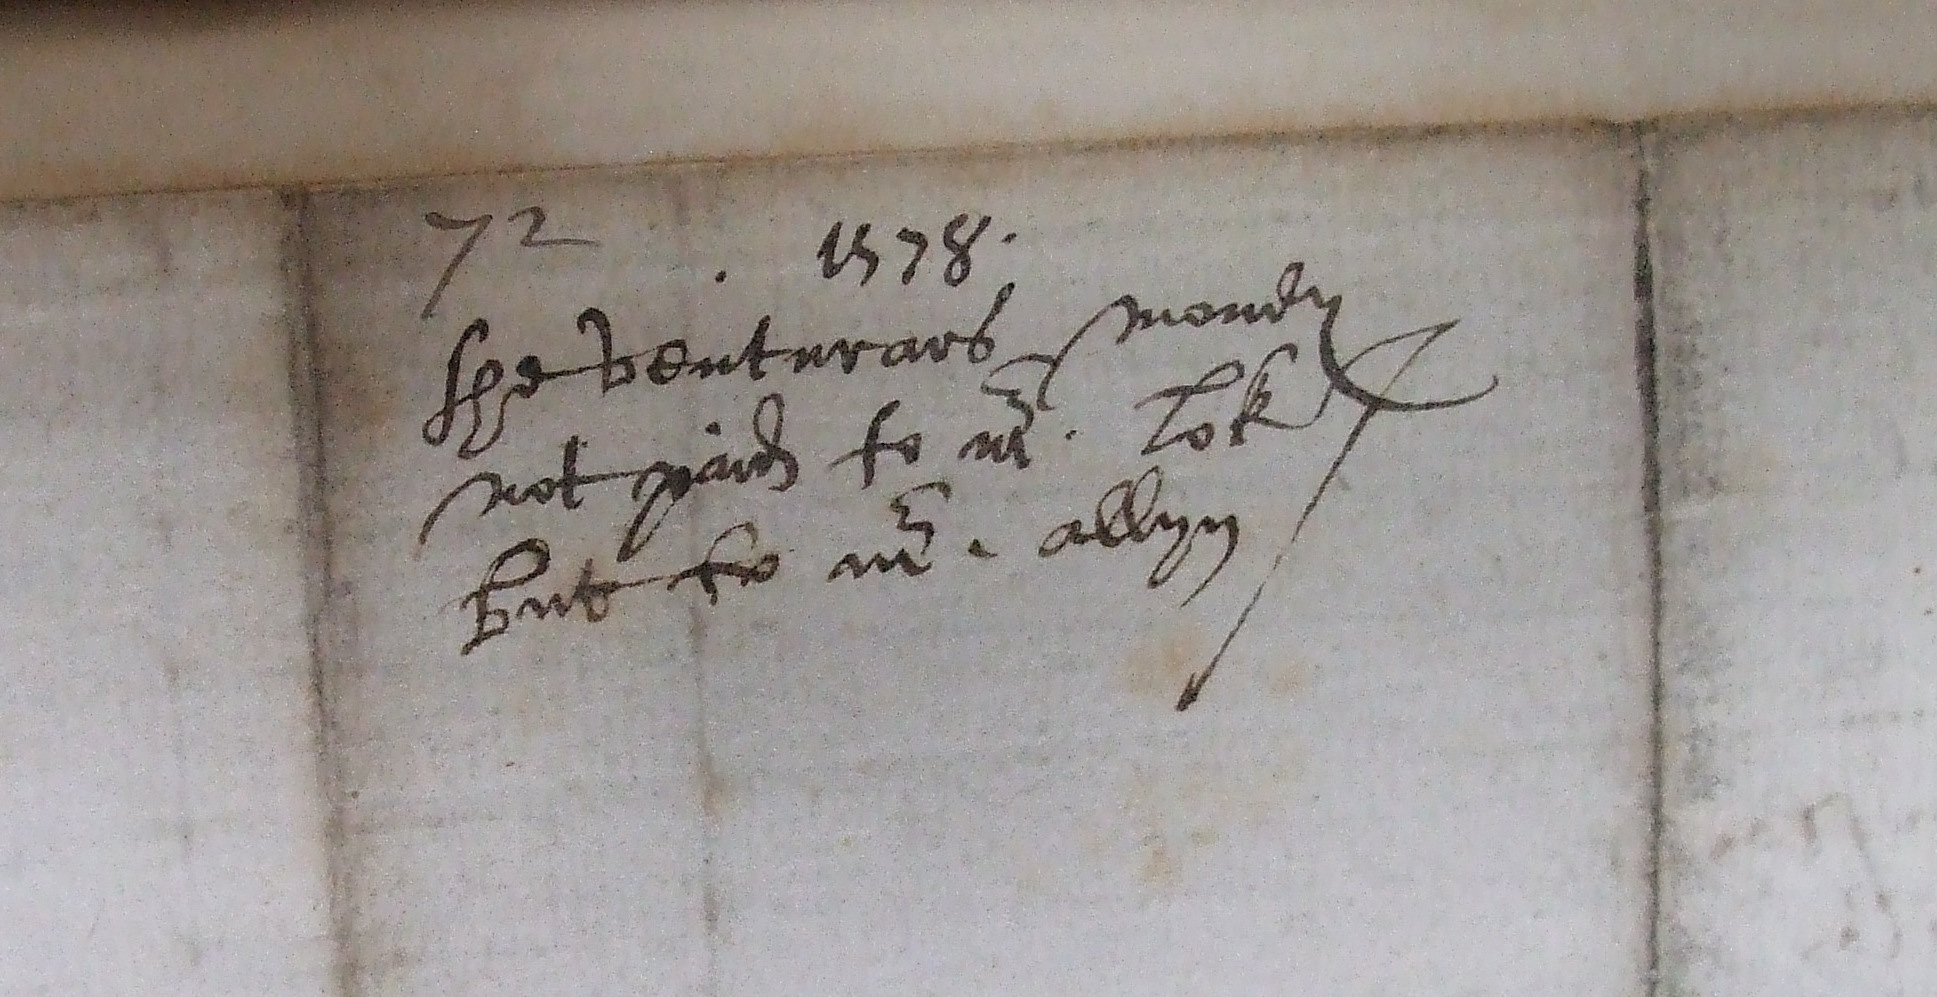 72
. 1578.
The venturars money
not paid to mr. Lok
but to mr. allyn